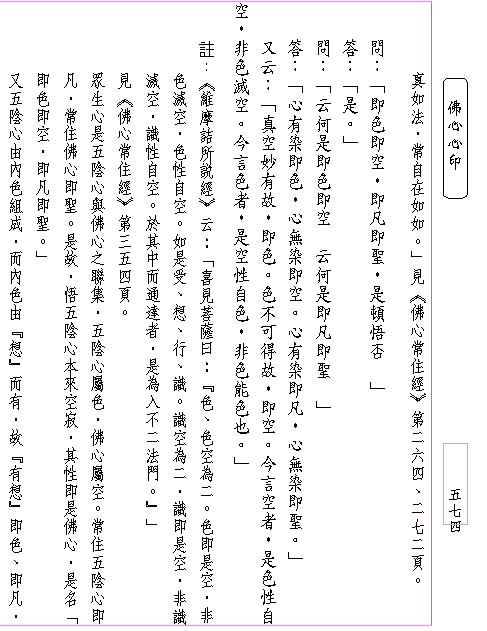 佛心心印
五七四
真如法，常自在如如。」見《佛心常住經》第二六四、二七二頁。
問：「即色即空，即凡即聖，是頓悟否　」
答：「是。」
問：「云何是即色即空　云何是即凡即聖　」
答：「心有染即色，心無染即空。心有染即凡，心無染即聖。」
又云：「真空妙有故，即色。色不可得故，即空。今言空者，是色性自
空，非色滅空。今言色者，是空性自色，非色能色也。」
註：《維摩詰所說經》云：「喜見菩薩曰：『色、色空為二。色即是空，非
色滅空，色性自空。如是受、想、行、識。識空為二，識即是空，非識
滅空，識性自空。於其中而通達者，是為入不二法門。』」
見《佛心常住經》第三五四頁。
眾生心是五陰心與佛心之聯集，五陰心屬色，佛心屬空。常住五陰心即
凡，常住佛心即聖。是故，悟五陰心本來空寂，其性即是佛心，是名「
即色即空，即凡即聖。」
又五陰心由內色組成，而內色由『想』而有，故『有想』即色、即凡，